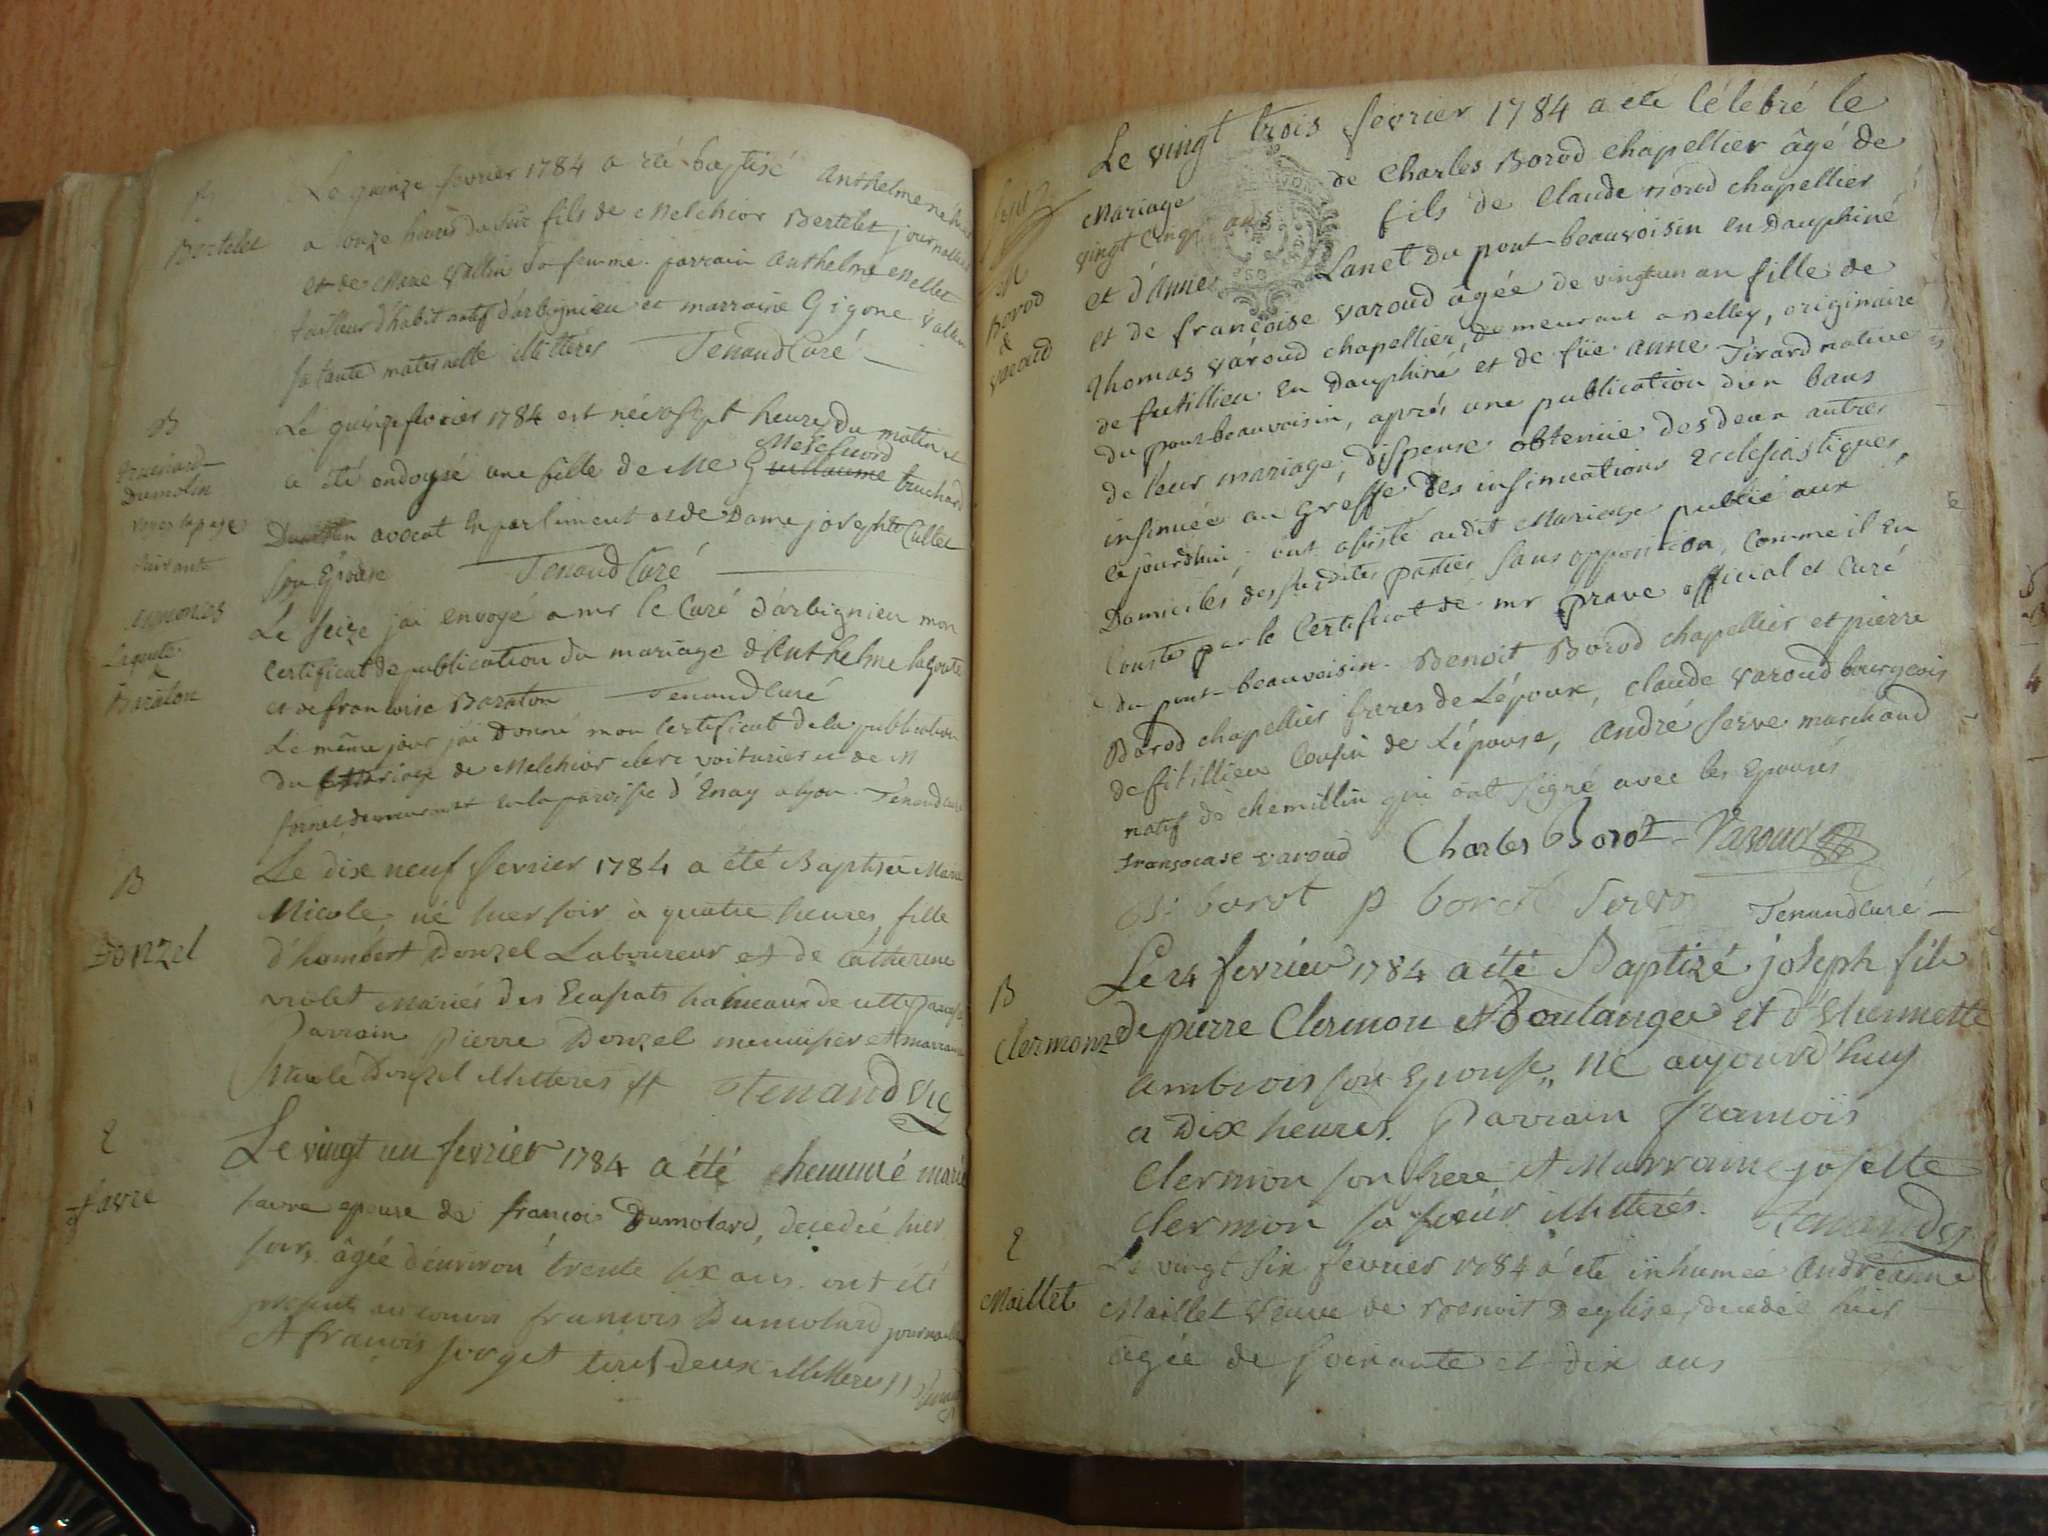 B
Bertelet
Le quinze fevrier 1784 a été baptisé Anthelme né hier
a onze heures du soir fils de Melchior Bertelet journallier
et de Marie Vallin sa femme. parrain Anthelme Mellet
tailleur d'habit natif d'arbignieu et marraine Gigone Vallin
sa tante maternelle illitterés Tenand Curé
B
truchard
Dumolin
voyes la page
suivante
Le quinze fevrier 1784 est née a sept heures du matin et
a été ondoyée une fille de Me Guillaume truchard
Dumolin avocat en parlement et de Dame josephte Cullet
son Epouse Tenand Curé
annonces
Lagoute
&
Baraton
Le seize j'ai envoyé a mr le Curé d'arbignieu mon
certificat de publication du mariage d'Anthelme lagoute
et de francoise Baraton Tenand Curé
Le même jour j'ai Donné mon certificat de la publication
du Mariage de Melchior clerc voiturier et de M
demeurant en la paroisse d'Enay a lyon. Tenand curé
B
Donzel
Le dix neuf fevrier 1784 a été Baptisée Marie
Nicole, né hier soir à quatre heures, fille
d'humbert Donzel Laboureur et de Catherine
violet Mariés des Ecassats hameaux de cette paroisse
Parrain Pierre Donzel menuisier et marraine
Nicole Donzel illitteres // Tenand Vic
E
favre
Le vingt un fevrier 1784 a été inhumé marie
favre epouse de francois Dumolard, decedée hier
soir, âgée d'environ trente six ans. ont été
présents au convoi francois Dumolard journallier
et francois forget tous deux illitteres // Tenand
M
Borod
&
Varoud
Le vingt trois fevrier 1784 a été célébré le
Mariage de Charles Borod chapellier âgé de
vingt cinq ans fils de Claude Borod chapellier
et d'Anne Lanet du pont-beauvoisin en Dauphiné
et de francoise varoud âgée de vingt un an fille de
Thomas varoud chapellier, demeurant a Belley, originaire
de futillieu en Dauphiné et de fue anne Tirard native
du pont beauvoisin, aprés une publication d'un bans
de leur mariage, dispense obtenue des deux autres
insinuée au Greffe des insinuations Ecclesiastiques
ce jourdhui; ont assisté audit Mariage publié aux
Domiciles des susdites parties sans opposition, comme il en
conste par le Certificat de mr prave official et Curé
du pont-beauvoisin. Benoit Borod chapellier et pierre
Borod chapellier freres de L'époux, Claude varoud bourgeois
de fitillieu Cousin de L'épouse, André Serve marchand
natif de chemillin qui ont signé avec les Epouses
Fransoiase varoud Charles Borot Varoud
Bt borot p borot Serve
Tenand curé
B
Clermont
Le 24 fevrier 1784 a été Baptizé joseph fils
de pierre Clermon Boulanger et d'Etiennette
ambrois son Epouse, né aujourd'huy
a Dix heures. Parrain francois
Clermon son frere et Marraine josette
Clermon sa soeur illitterés. Tenand Vic
E
Maillet
Le vingt six fevrier 1784 a été inhumée Andréanne
Maillet veuve de Benoit Deglise, decedée hier
âgée de soixante et dix ans